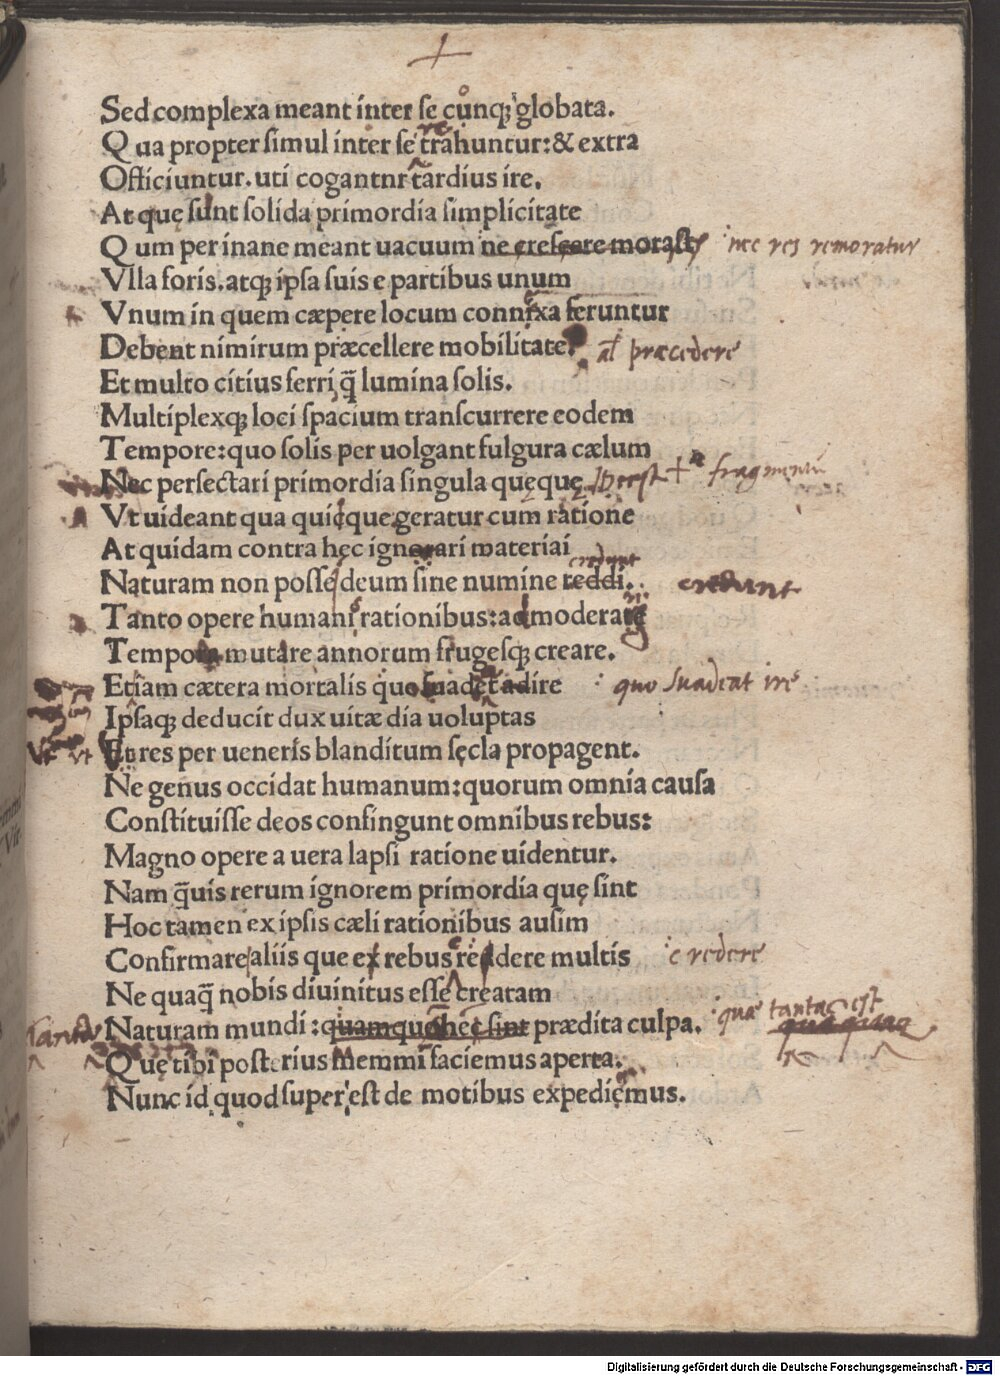 Sed complexa meant inter se cunq; globata.
Q ua propter simul inter se trahuntur: & extra
Officiuntur. uti cogantnr tardius ire.
At quę sunt solida primordia simplicitate
Q um per inane meant uacuum ne crescere morast : nec res remoratur
Vlla foris. atq; ipsa suis e partibus unum
Vnum in quem cæpere locum connixa feruntur
Debent nimirum præcellere mobilitate. al præcedere
Et multo citius ferri q̄ lumina solis.
Multiplexq; loci spacium transcurrere eodem
Tempore: quo solis per uolgant fulgura cælum
Nec persectari primordia singula quęquę Deest + fragmentū
Vt uideant qua quicque geratur cum ratione
At quidam contra hęc ignorari materiai
credunt
Naturam non posse deum sine numine reddi. credunt
Tanto opere humani rationibus: admoderate
Tempora mutare annorum frugesq; creare.
Etiam cætera mortalis quo suadet adire : quo suadeat ire
Ipsaq; deducit dux uitæ dia uoluptas
Vt vt Et res per ueneris blanditum sęcla propagent.
Ne genus occidat humanum: quorum omnia causa
Constituisse deos confingunt omnibus rebus:
Magno opere a uera lapsi ratione uidentur.
Nam q̄uis rerum ignorem primordia quę sint
Hoc tamen ex ipsis cæli rationibus ausim
Confirmare aliis que ex rebus reddere multis : e redere
Ne quaq̄ nobis diuinitus esse creatam
Naturam mundi: quamquō hęc sint prædita culpa. : quæ tanta est
Quę tibi posterius memmi faciemus aperta.
Nunc id quod super est de motibus expediemus.
Digitalisierung gefördert durch die Deutsche Forschungsgemeinschaft - DFG